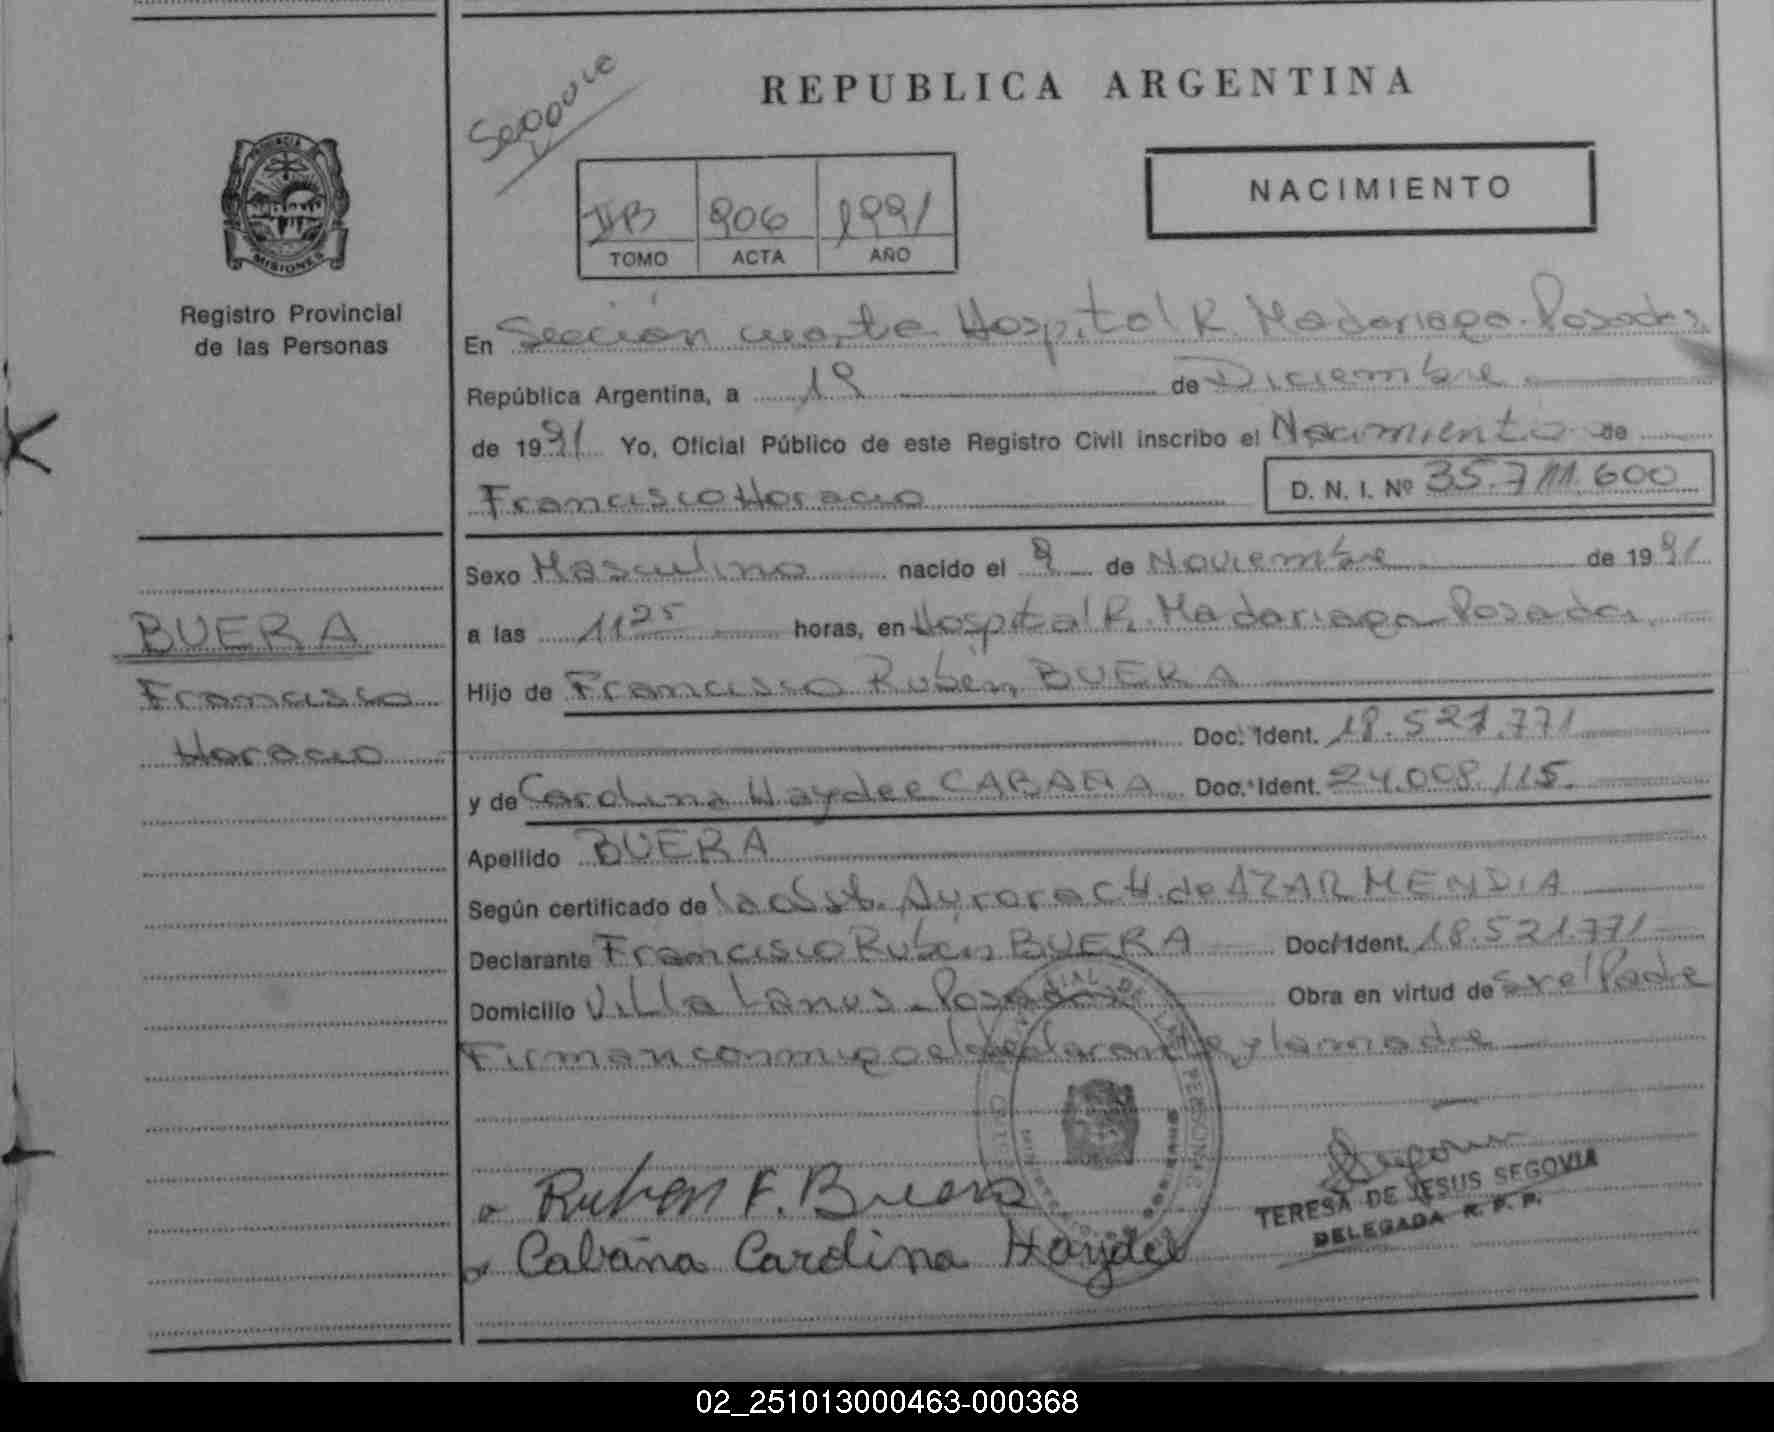 REPUBLICA ARGENTINA
NACIMIENTO
PROVINCIA DE
MISIONES
Registro Provincial
de las Personas
IIB 906 1991
TOMO ACTA AÑO
En Sección cuarta Hospital R. Madariaga-Posadas
República Argentina, a 19 de Diciembre
de 1991 Yo, Oficial Público de este Registro Civil inscribo el Nacimiento de
Francisco Horacio D. N. I. Nº 35.711.600
BUERA
Francisco
Horacio
Sexo Masculino nacido el 9 de Noviembre de 1991
a las 11 25 horas, en Hospital R. Madariaga-Posadas
Hijo de Francisco Rubén BUERA
Doc. Ident. 18.521.771
y de Carolina Haydee CABAÑA Doc. Ident. 24.008.115.
Apellido BUERA
Según certificado de la Obst. Aurora C H. de AZARMENDIA
Declarante Francisco Rubén BUERA Doc. Ident. 18.521.771
Domicilio Villa Lanus-Posadas Obra en virtud de ser el Padre
Firman conmigo el declarante y la madre
Ruben F. Buera
Cabaña Carolina Haydee
TERESA DE JESUS SEGOVIA
DELEGADA R. P. P.
02_251013000463-000368